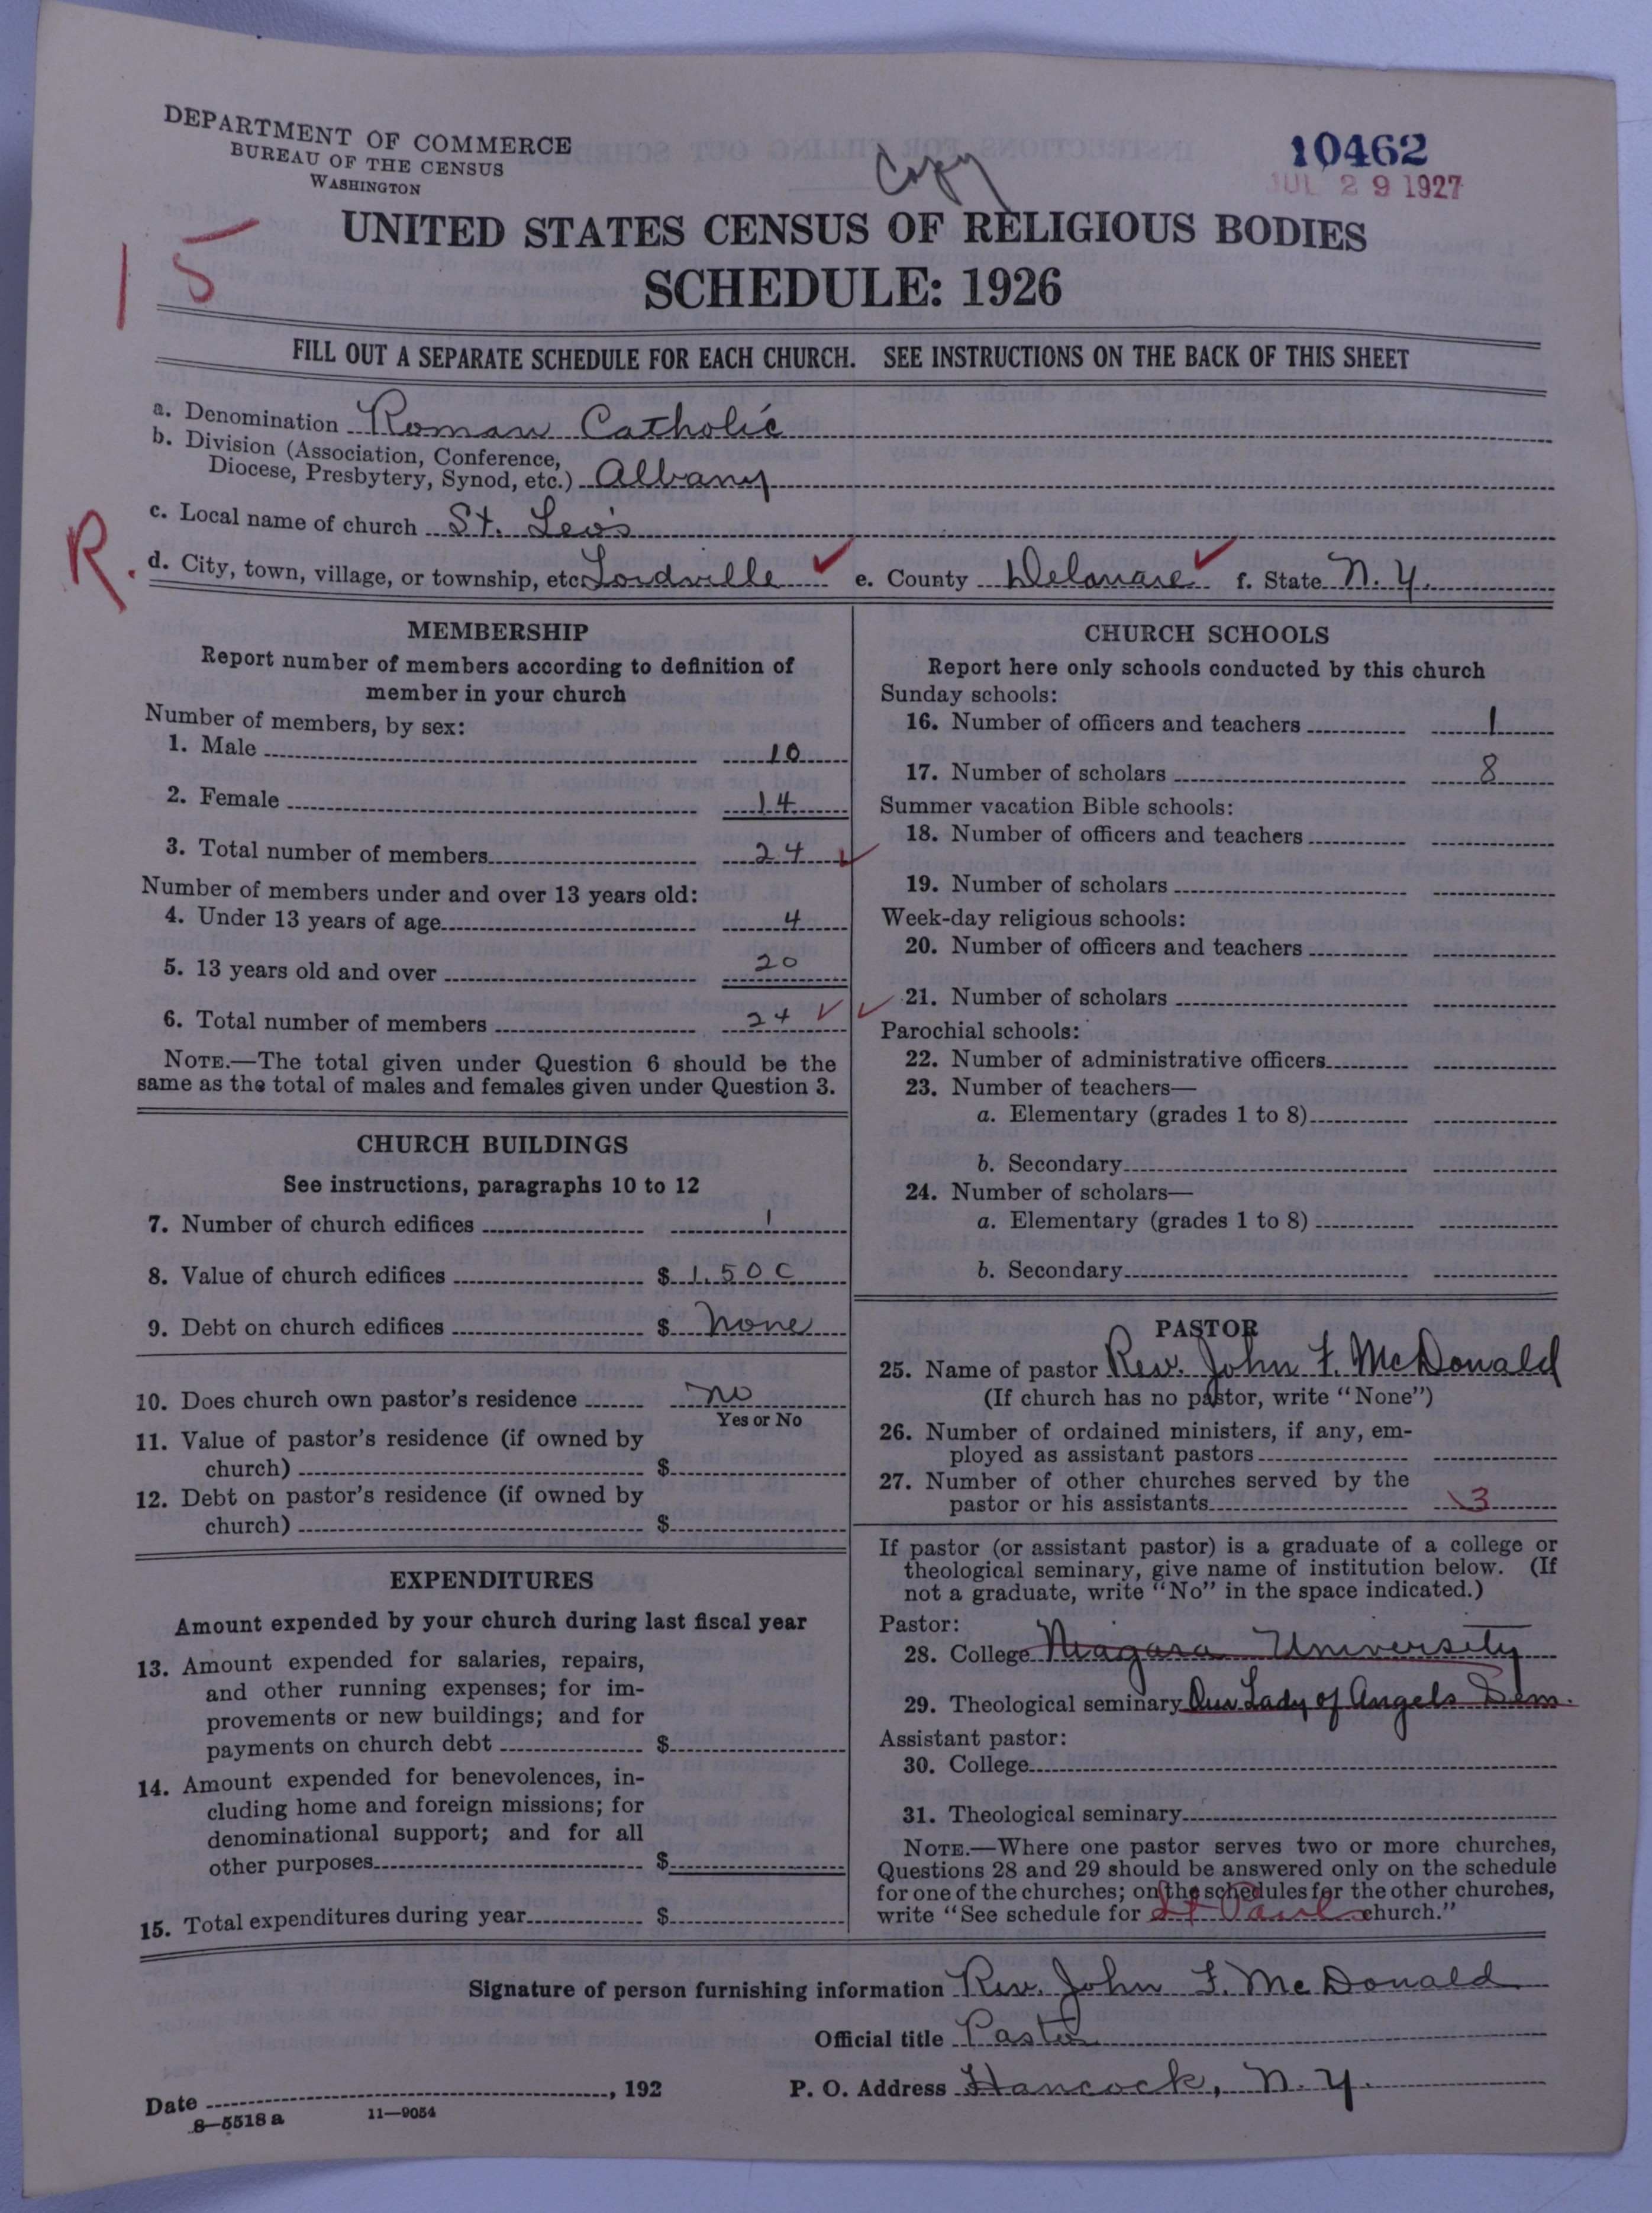 DEPARTMENT OF COMMERCE
BUREAU OF THE CENSUS
WASHINGTON
Copy
10462
JUL 29 1927
15
UNITED STATES CENSUS OF RELIGIOUS BODIES
SCHEDULE: 1926
FILL OUT A SEPARATE SCHEDULE FOR EACH CHURCH. SEE INSTRUCTIONS ON THE BACK OF THIS SHEET
a. Denomination Roman Catholic
b. Division (Association, Conference,
Diocese, Presbytery, Synod, etc.) Albany
c. Local name of church St. Leo's
R.
d. City, town, village, or township, etc. Lordville ✓ e. County Delaware ✓ f. State N.Y.
MEMBERSHIP
Report number of members according to definition of
member in your church
Number of members, by sex:
1. Male 10
2. Female 14
3. Total number of members 24 ✓
Number of members under and over 13 years old:
4. Under 13 years of age 4
5. 13 years old and over 20
6. Total number of members 24 ✓ ✓
NOTE.—The total given under Question 6 should be the
same as the total of males and females given under Question 3.
CHURCH BUILDINGS
See instructions, paragraphs 10 to 12
7. Number of church edifices 1
8. Value of church edifices $ 1,500
9. Debt on church edifices $ None
10. Does church own pastor's residence no
Yes or No
11. Value of pastor's residence (if owned by
church) $
12. Debt on pastor's residence (if owned by
church) $
EXPENDITURES
Amount expended by your church during last fiscal year
13. Amount expended for salaries, repairs,
and other running expenses; for im-
provements or new buildings; and for
payments on church debt $
14. Amount expended for benevolences, in-
cluding home and foreign missions; for
denominational support; and for all
other purposes $
15. Total expenditures during year $
CHURCH SCHOOLS
Report here only schools conducted by this church
Sunday schools:
16. Number of officers and teachers 1
17. Number of scholars 8
Summer vacation Bible schools:
18. Number of officers and teachers
19. Number of scholars
Week-day religious schools:
20. Number of officers and teachers
21. Number of scholars
Parochial schools:
22. Number of administrative officers
23. Number of teachers—
a. Elementary (grades 1 to 8)
b. Secondary
24. Number of scholars—
a. Elementary (grades 1 to 8)
b. Secondary
PASTOR
25. Name of pastor Rev. John F. McDonald
(If church has no pastor, write "None")
26. Number of ordained ministers, if any, em-
ployed as assistant pastors
27. Number of other churches served by the
pastor or his assistants 3
If pastor (or assistant pastor) is a graduate of a college or
theological seminary, give name of institution below. (If
not a graduate, write "No" in the space indicated.)
Pastor:
28. College Niagara University
29. Theological seminary Our Lady of Angels Sem.
Assistant pastor:
30. College
31. Theological seminary
NOTE.—Where one pastor serves two or more churches,
Questions 28 and 29 should be answered only on the schedule
for one of the churches; on the schedules for the other churches,
write "See schedule for St Pauls church."
Signature of person furnishing information Rev. John F. McDonald
Official title Pastor
Date , 192 P. O. Address Hancock, N.Y.
8—5518 a 11—9054